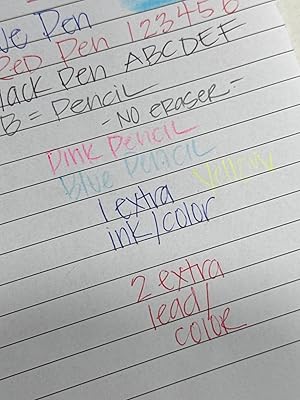 ue Pen
Red Pen 123456
lack Pen ABCDEF
B = Pencil
- NO ERASER -
Pink Pencil
Blue Pencil
Yellow
1 extra
ink/color
2 extra
lead/
color